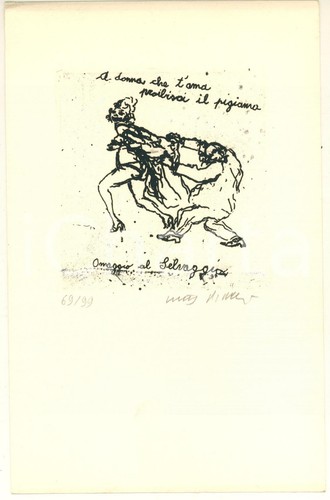 A donna che t'ama
proibisci il pigiama
Omaggio al Selvaggio
69/99